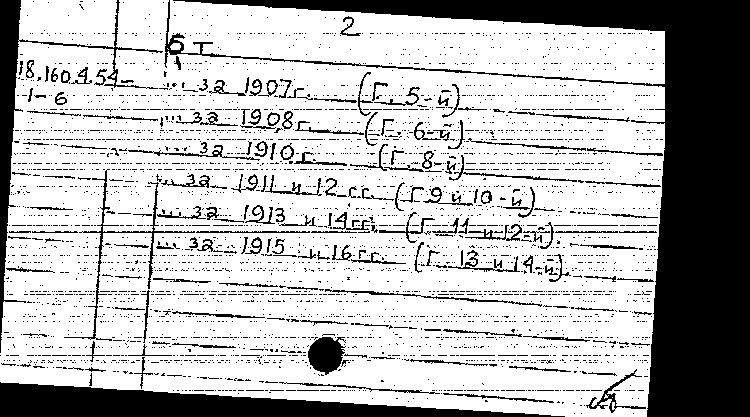 2
6 т
18.160.4.54- ... за 1907г. (Г. 5-й).
1-6
... за 1908г. (Г. 6-й).
... за 1910 г. (Г. 8-й)
... за 1911 и 12 гг. (Г. 9 и 10-й)
... за 1913 и 14 гг. (Г. 11 и 12-й).
... за 1915 и 16 гг. (Г. 13 и 14-й).